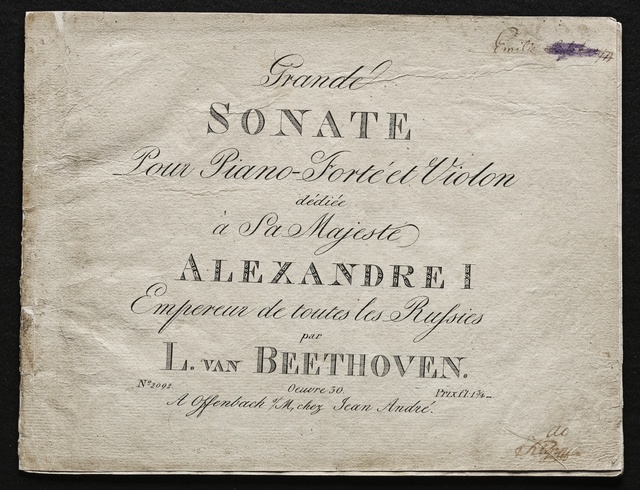 Emilie
Grande
SONATE
Pour Piano-Forté et Violon
dédiée
à Sa Majesté
ALEXANDRE I
Empereur de toutes les Rußies
par
L. VAN BEETHOVEN.
Nº 2092. Oeuvre 30. Prix fl. 1¾
A Offenbach s/M, chez Jean André.
de